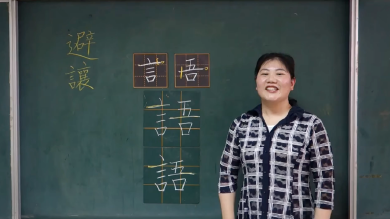 避讓
言 吾
語
語